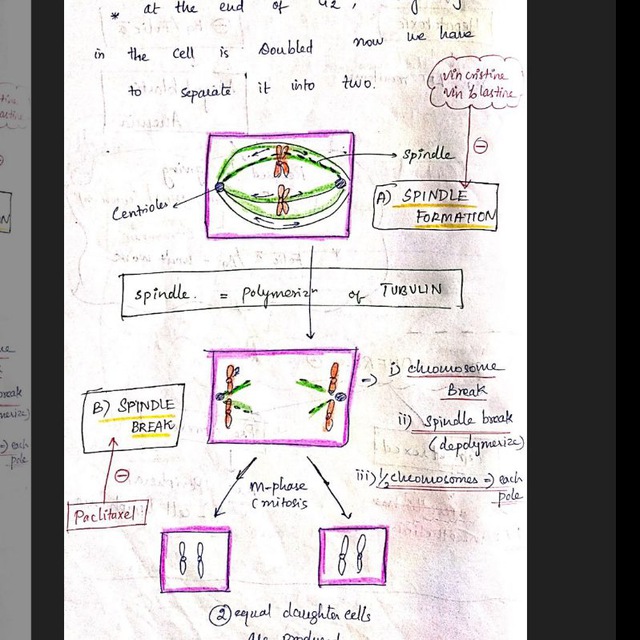 * at the end of G2,
in the cell is Doubled now we have
to separate it into two.
vin cristine
vin blastine
⊖
spindle
Centrioles
A) SPINDLE
FORMATION
spindle. = polymerizn of TUBULIN
B) SPINDLE
BREAK
⊖
Paclitaxel
i) chromosome
Break
ii) spindle break
(depolymerize)
iii) 1/2 chromosomes => each
pole
M-phase
(mitosis
② equal daughter cells
are